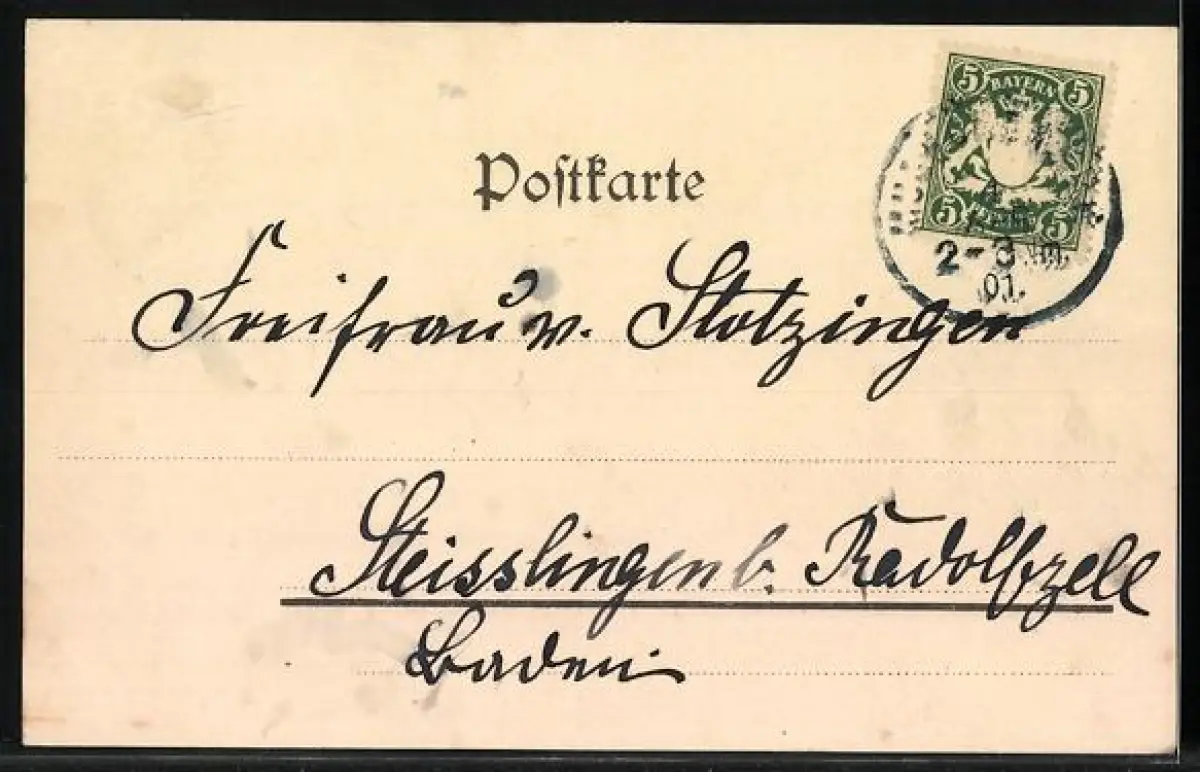 5 BAYERN 5
5 5
2-3 Nm.
01.
Postkarte
Freifrau v. Stotzingen
Steisslingen b. Radolfzell
Baden.